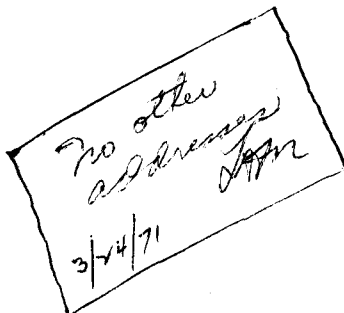 No other
addresses
3/24/71